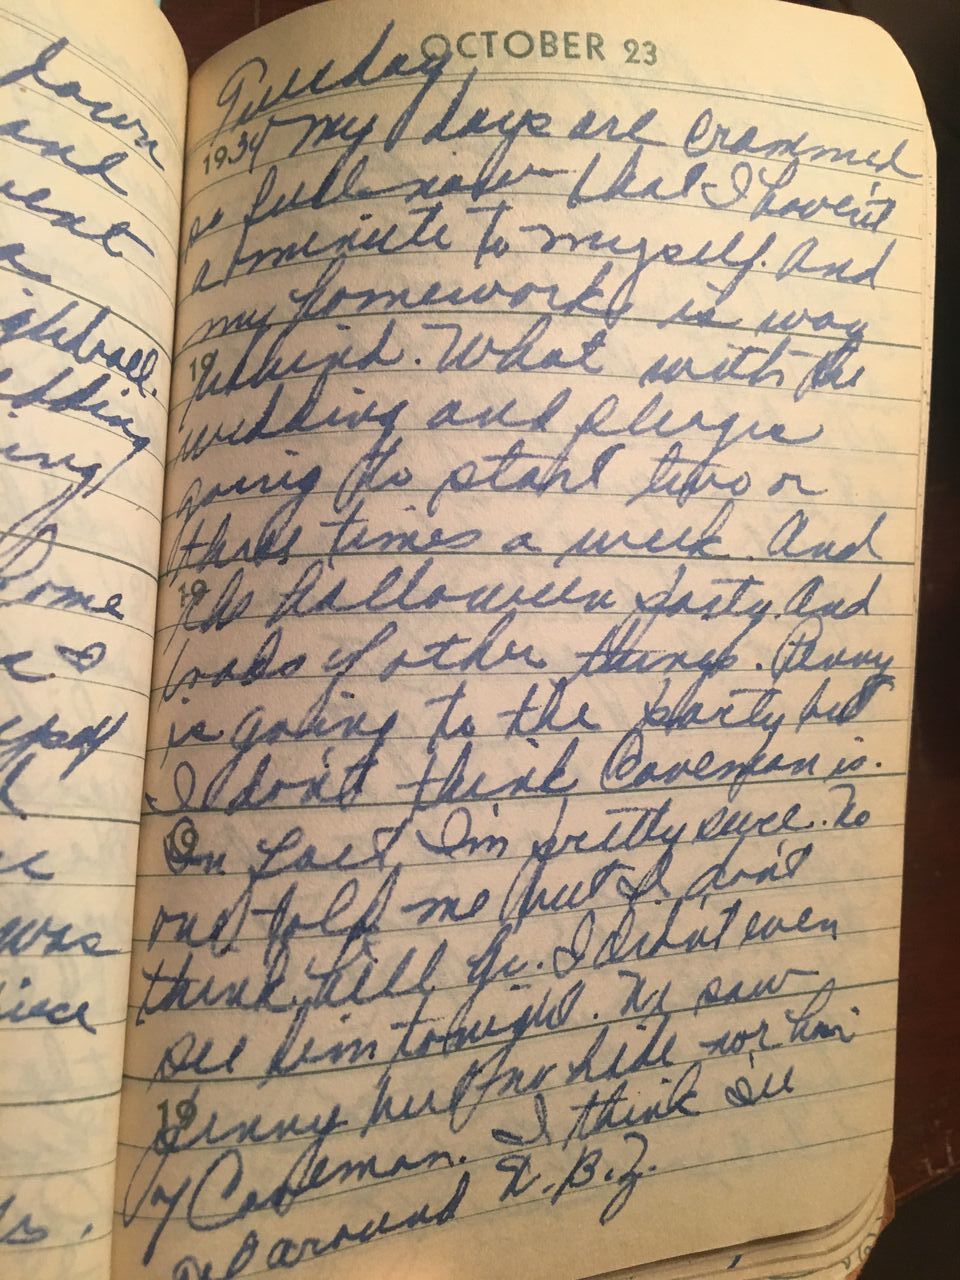 OCTOBER 23
Tuesday
1934 My days are crammed
so full now that I haven't
a minute to myself. And
my homework is way
19 behind. What with the
wedding and
going to start two or
three times a week. And
19 the Halloween party. And
loads of other things. Penny
is going to the party but
I don't think Caveman is.
19 In fact, I'm pretty sure. No
one told me but I don't
think he'll go. I didn't even
see him tonight. We saw
19 Penny but no hide nor hair
of Caveman. I think I'll
around
down
and
went
a
wedding
ing
home
& I
was